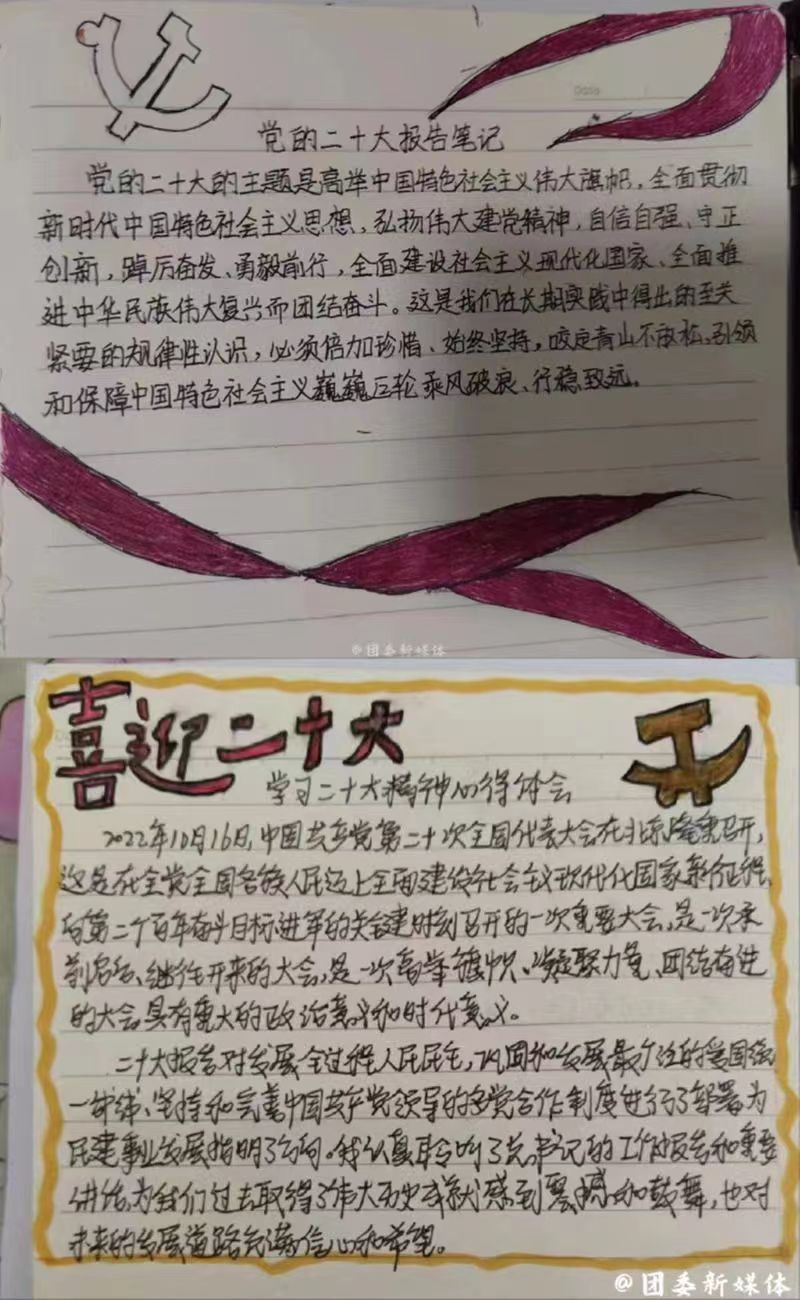 Date
党的二十大报告笔记
党的二十大的主题是高举中国特色社会主义伟大旗帜,全面贯彻
新时代中国特色社会主义思想,弘扬伟大建党精神,自信自强、守正
创新,踔厉奋发、勇毅前行,全面建设社会主义现代化国家、全面推
进中华民族伟大复兴而团结奋斗。这是我们在长期实践中得出的至关
紧要的规律性认识,必须倍加珍惜、始终坚持,咬定青山不放松,引领
和保障中国特色社会主义巍巍巨轮乘风破浪、行稳致远。
@团委新媒体
喜迎二十大
学习二十大精神心得体会
2022年10月16日,中国共产党第二十次全国代表大会在北京隆重召开,
这是在全党全国各族人民迈上全面建设社会主义现代化国家新征程,
向第二个百年奋斗目标进军的关键时刻召开的一次重要大会,是一次承
前启后、继往开来的大会,是一次高举旗帜、凝聚力量、团结奋进
的大会,具有重大的政治意义和时代意义。
二十大报告对发展全过程人民民主,巩固和发展最广泛的爱国统
一战线、坚持和完善中国共产党领导的多党合作制度进行了部署,为
民建事业发展指明了方向。我认真聆听了总书记的工作报告和重要
讲话,为我们过去取得了伟大历史成就感到震撼和鼓舞,也对
未来的发展道路充满信心和希望。
@团委新媒体